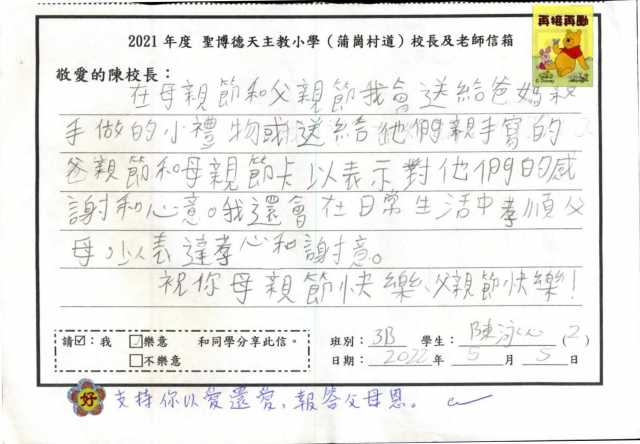 2021 年度 聖博德天主教小學（蒲崗村道）校長及老師信箱
再接再勵
敬愛的陳校長：
在母親節和父親節我會送給爸媽親
手做的小禮物或送給他們親手寫的
爸親節和母親節卡以表示對他們的感
謝和心意。我還會在日常生活中孝順父
母，以表達孝心和謝意。
祝你母親節快樂、父親節快樂！
請☑：我 ☑樂意 和同學分享此信。
□不樂意
班別：3B 學生：陳泳心 (2)
日期：2022 年 5 月 5 日
好 支持你以愛還愛，報答父母恩。